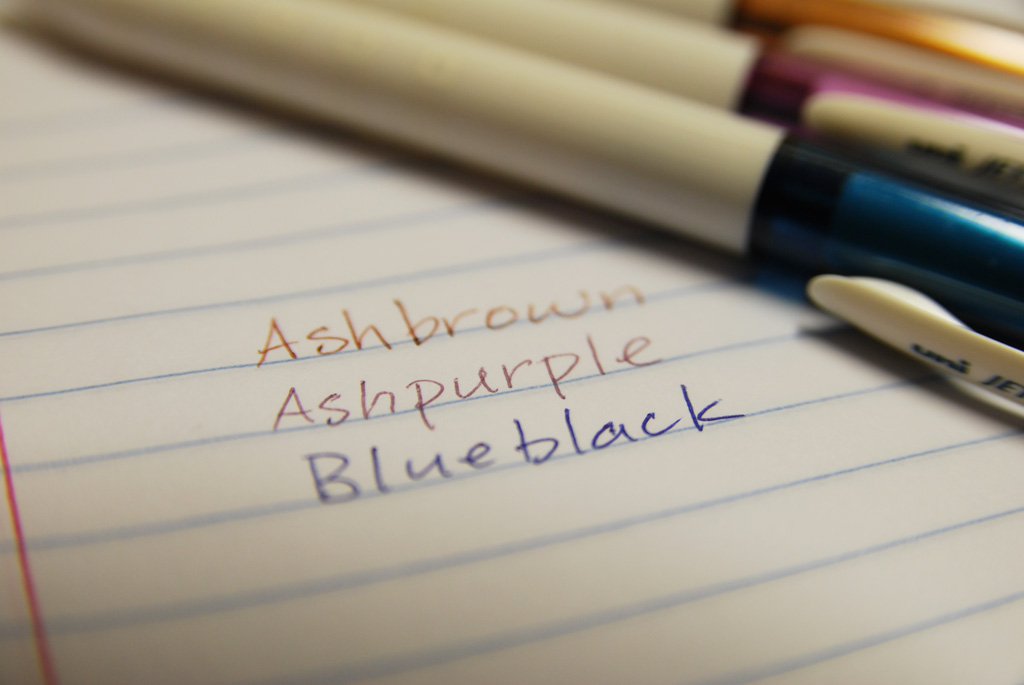 Ashbrown
Ashpurple
Blueblack
uni JE
uni JET